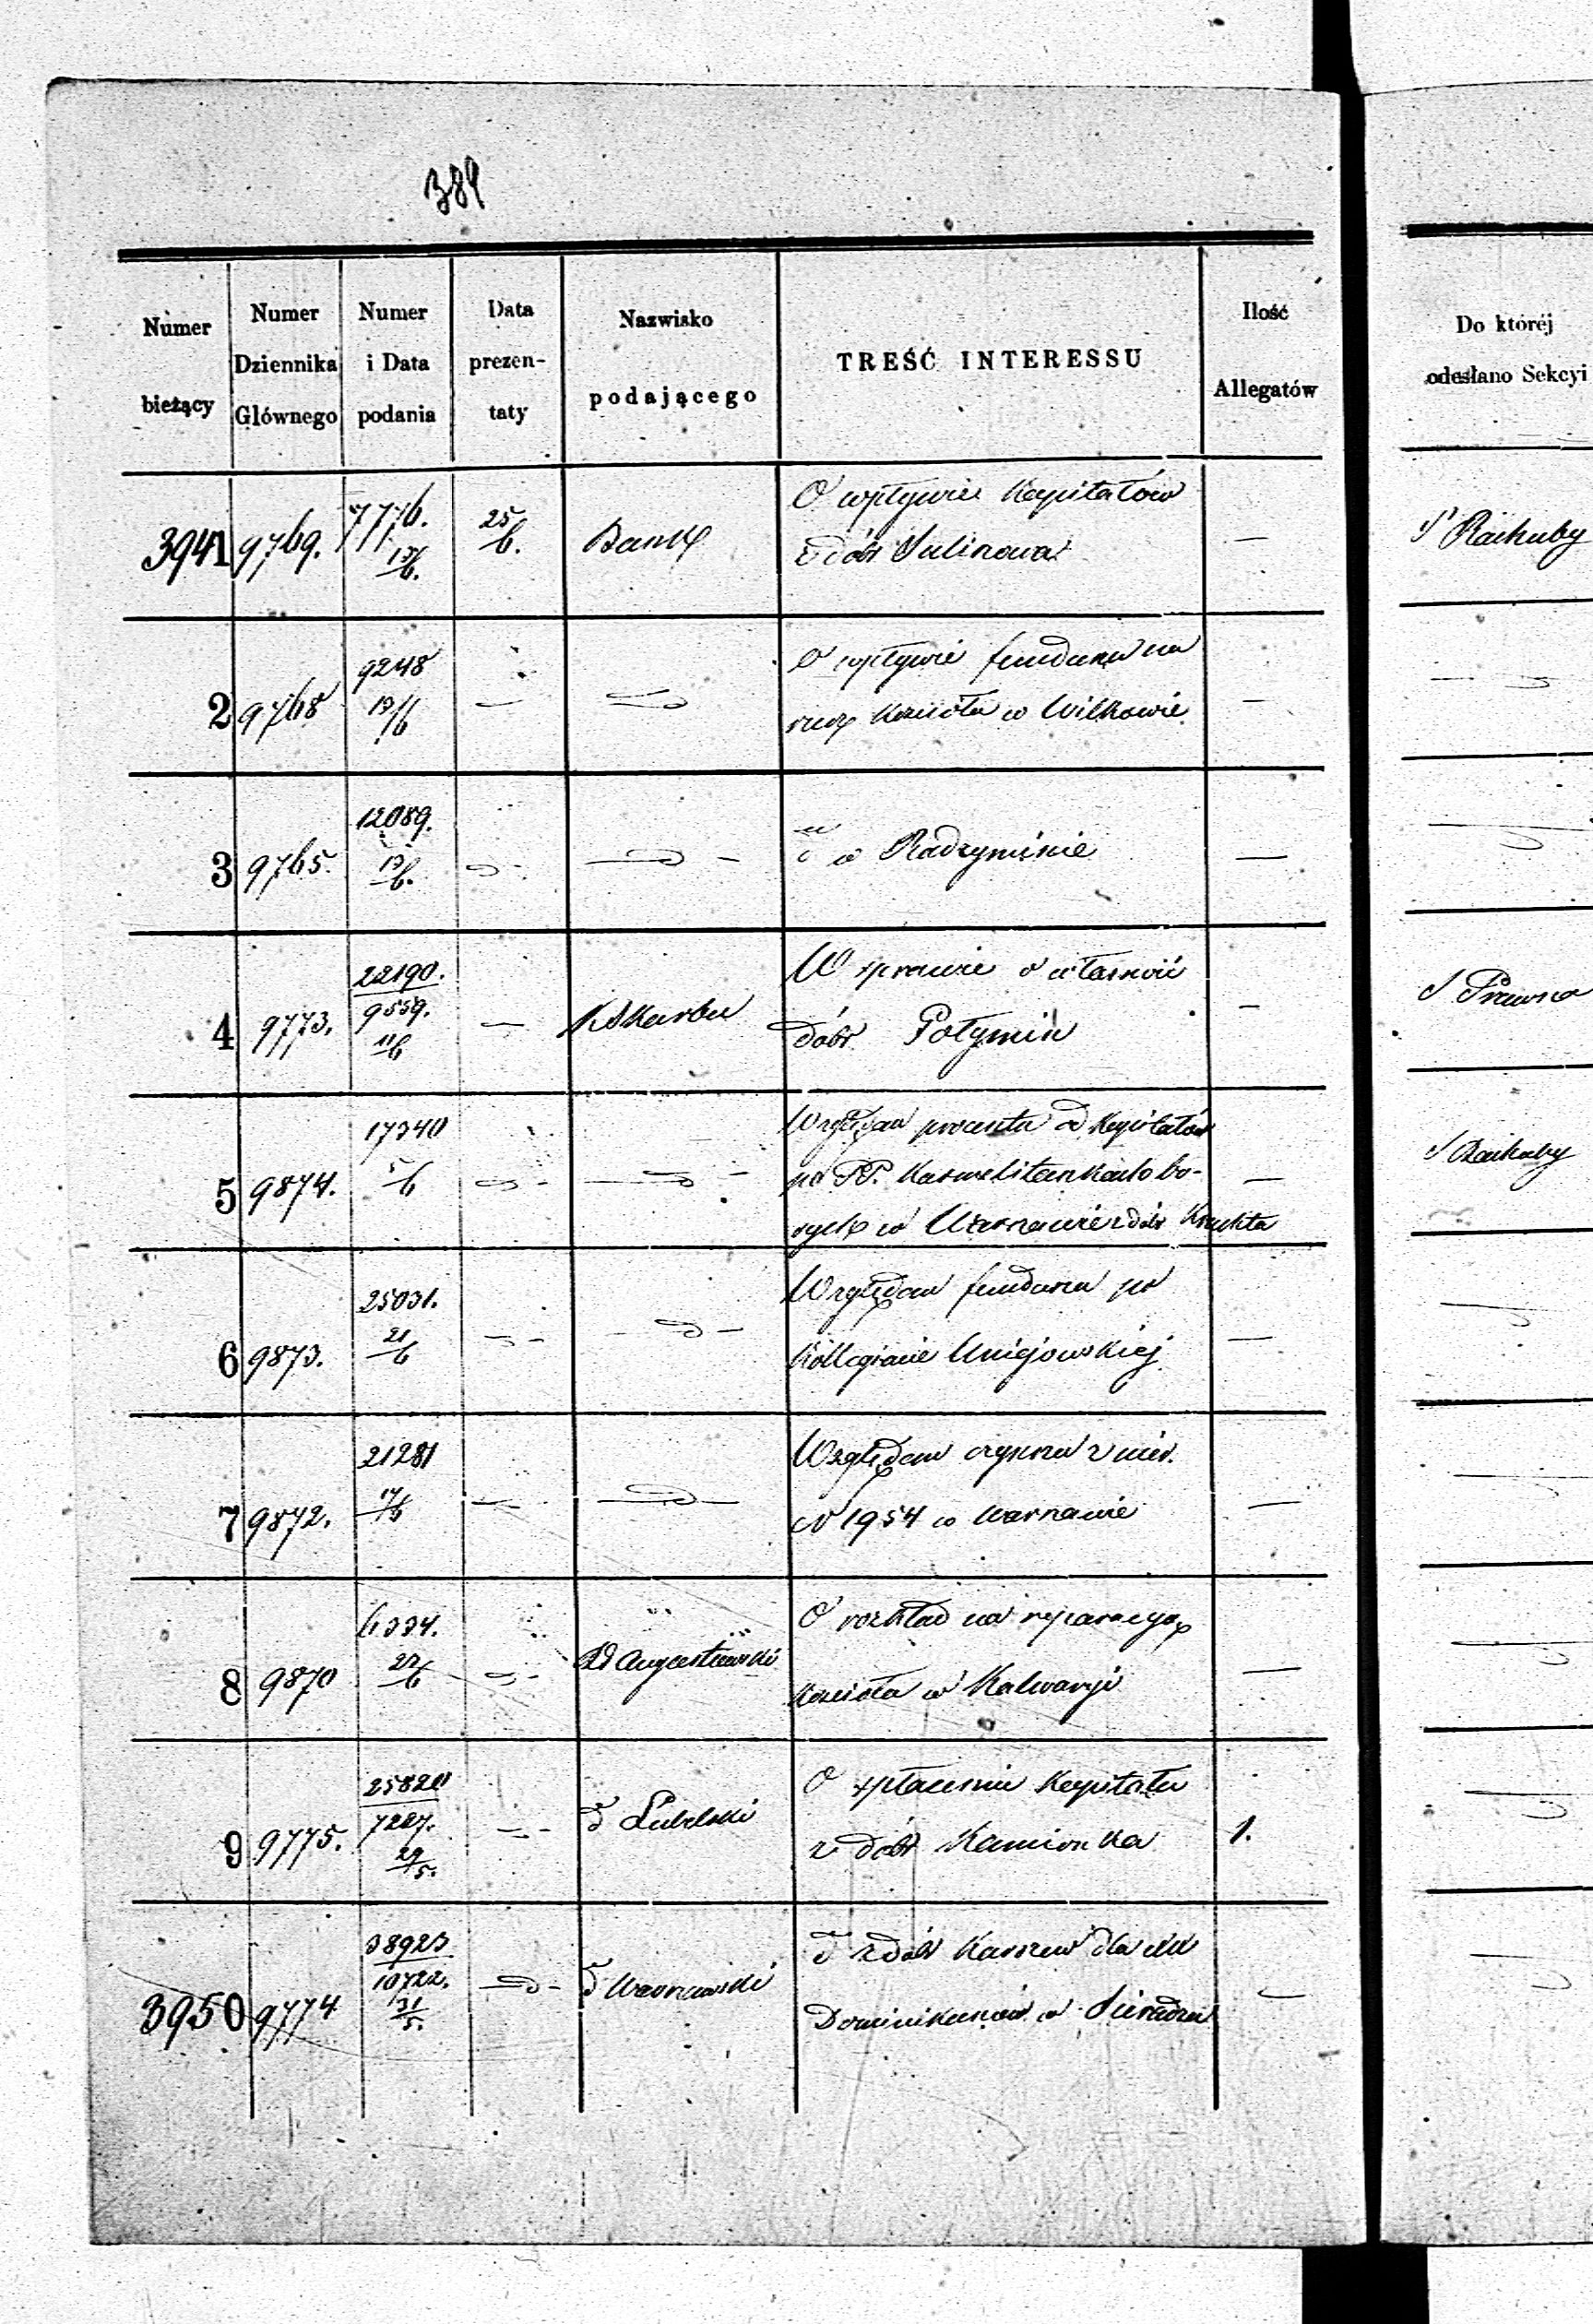 389
Numer bieżący
Numer Dziennika Głównego
Numer i Data podania
Data prezen-taty
Nazwisko podającego
TREŚĆ INTERESSU
Ilość Allegatów
Do któréj odesłano Sekcyi
3941 9769. 7776. 13/6. 25/6. Bank O wpływie Kapitałów — S Rachuby
z dóbr Sulinowa
2 9768 9248 19/6 — O wpływie funduszu na —
rzecz kościoła w Wilkowie
3 9765. 12089. 13/6. d° w Radzyminie —
4 9773. 22190. 9559. 11/6 — K Skarbu W sprawie o własność — S Prawna
dóbr Połymin
5 9874. 17340 5/6 Względem procentu od Kapitałów — S Rachuby
po PP. Karmelitankach bo-
sych w Warszawie z dóbr
6 9873. 25031. 21/6 Względem funduszu po —
Kollegiacie Uniejowskiej
7 9872. 21281 17/6 Względem czynszu z nier. —
N 1954 w Warszawie
8 9870 6334. 22/6 Rd Augustowski O rozkład na reparacyą —
kościoła w Kalwaryi
9 9775. 25820 7227. 29/5. d° Lubelski O spłacenie Kapitału 1.
z dóbr Kamionka
3950 9774 38923 10722. 31/5. d° Warszawski d° z dóbr Karszew dla XX —
Dominikanów w Sieradzu